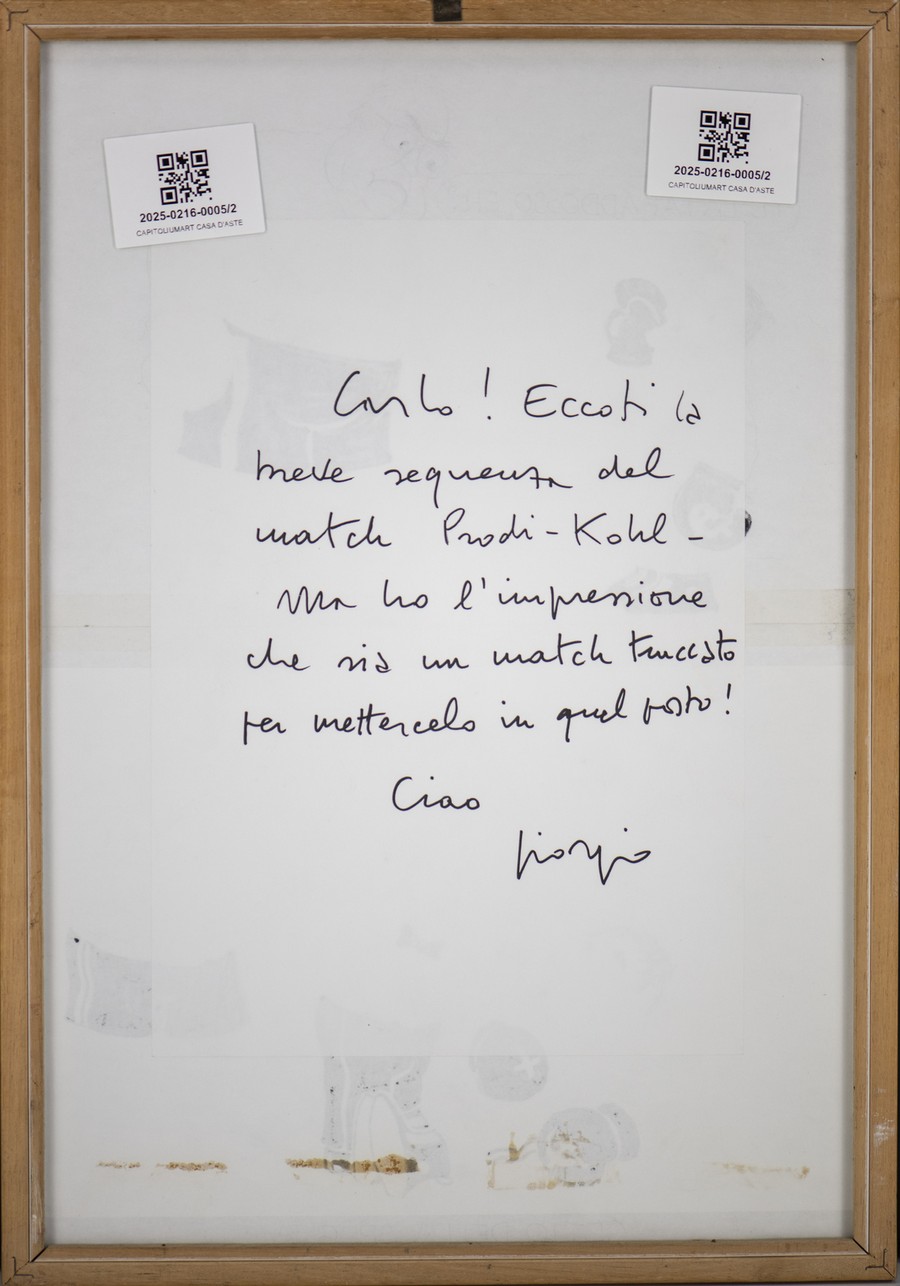 2025-0216-0005/2
CAPITOLIUMART CASA D'ASTE
2025-0216-0005/2
CAPITOLIUMART CASA D'ASTE
Carlo! Eccoti la
breve sequenza del
match Prodi-Kohl -
Ma ho l'impressione
che sia un match truccato
per mettercelo in quel posto!
Ciao
Giorgio